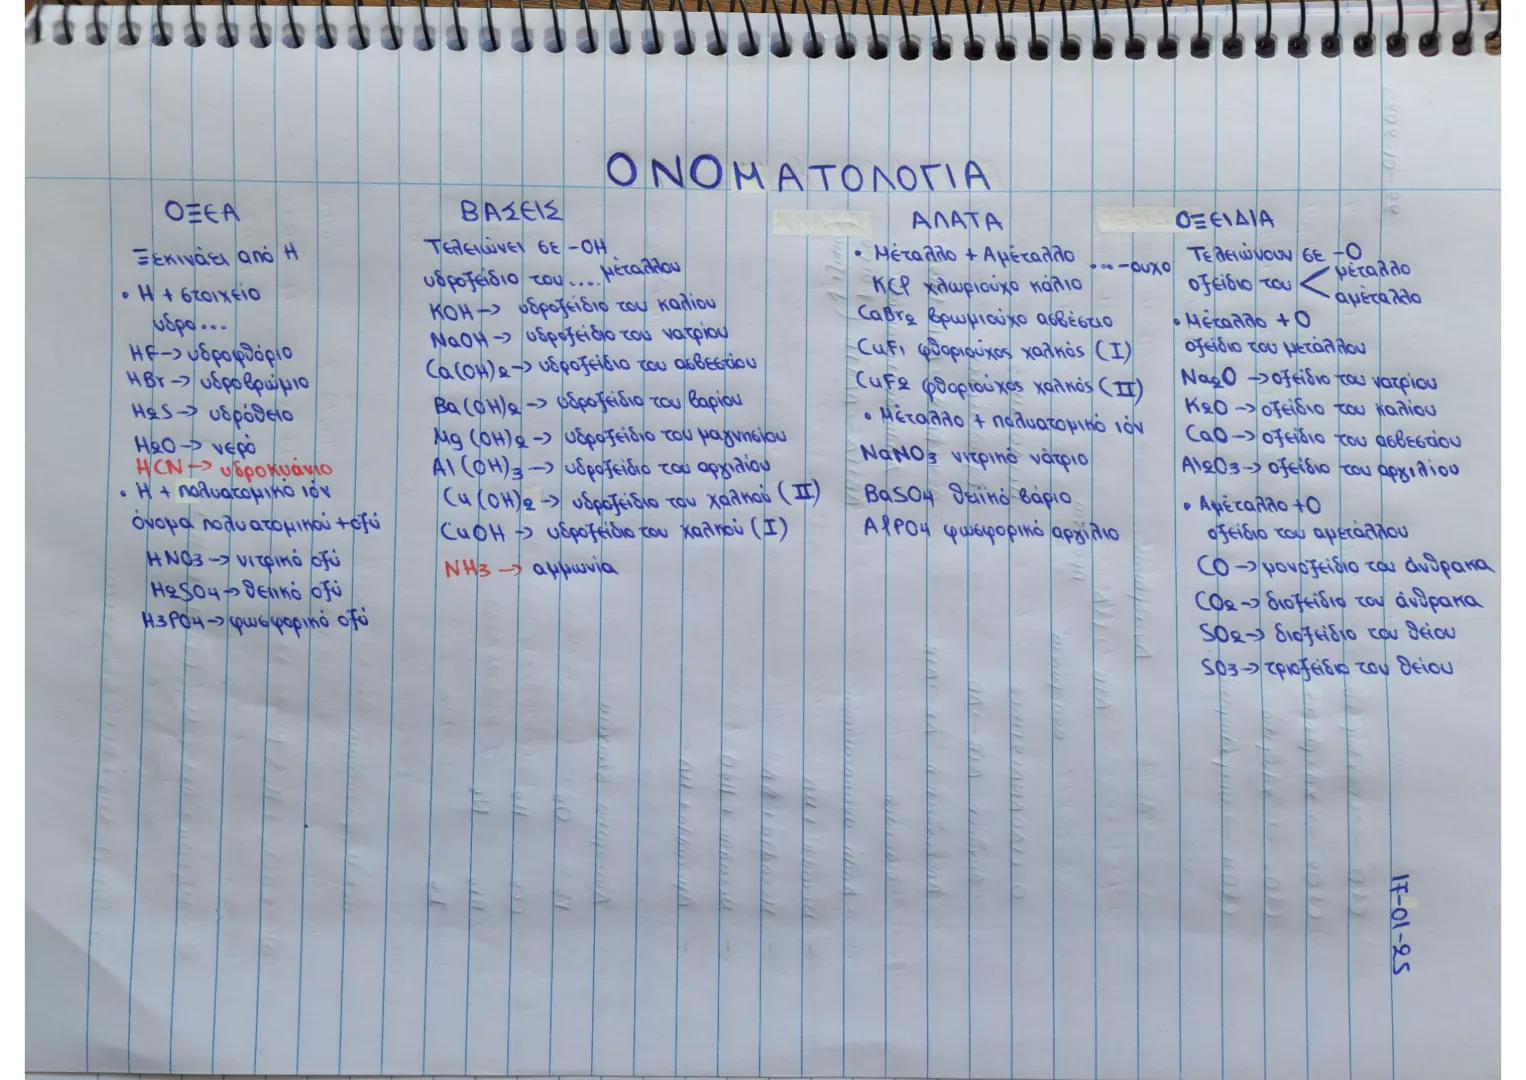 ΟΝΟΜΑΤΟΛΟΓΙΑ
ΟΞΕΑ
Ξεκινάει από Η
• Η + στοιχείο
υδρο...
HF -> υδροφθόριο
HBr -> υδροβρώμιο
H2S -> υδρόθειο
H2O -> νερό
HCN -> υδροκυάνιο
• Η + πολυατομικό ιόν
όνομα πολυατομικού + οξύ
HNO3 -> νιτρικό οξύ
H2SO4 -> θειικό οξύ
H3PO4 -> φωσφορικό οξύ
ΒΑΣΕΙΣ
Τελειώνει σε -OH
υδροξείδιο του .... μέταλλου
KOH -> υδροξείδιο του καλίου
NaOH -> υδροξείδιο του νατρίου
Ca(OH)2 -> υδροξείδιο του ασβεστίου
Ba(OH)2 -> υδροξείδιο του βαρίου
Mg(OH)2 -> υδροξείδιο του μαγνησίου
Al(OH)3 -> υδροξείδιο του αργιλίου
Cu(OH)2 -> υδροξείδιο του χαλκού (II)
CuOH -> υδροξείδιο του χαλκού (I)
NH3 -> αμμωνία
ΑΛΑΤΑ
• Μέταλλο + Αμέταλλο ...-ουχο
KCl χλωριούχο κάλιο
CaBr2 βρωμιούχο ασβέστιο
CuF1 φθοριούχος χαλκός (I)
CuF2 φθοριούχος χαλκός (II)
• Μέταλλο + πολυατομικό ιόν
NaNO3 νιτρικό νάτριο
BaSO4 θειικό βάριο
AlPO4 φωσφορικό αργίλιο
ΟΞΕΙΔΙΑ
Τελειώνουν σε -O
οξείδιο του < μέταλλο
αμέταλλο
• Μέταλλο + O
οξείδιο του μετάλλου
Na2O -> οξείδιο του νατρίου
K2O -> οξείδιο του καλίου
CaO -> οξείδιο του ασβεστίου
Al2O3 -> οξείδιο του αργιλίου
• Αμέταλλο + O
οξείδιο του αμετάλλου
CO -> μονοξείδιο του άνθρακα
CO2 -> διοξείδιο του άνθρακα
SO2 -> διοξείδιο του θείου
SO3 -> τριοξείδιο του θείου
17-01-25